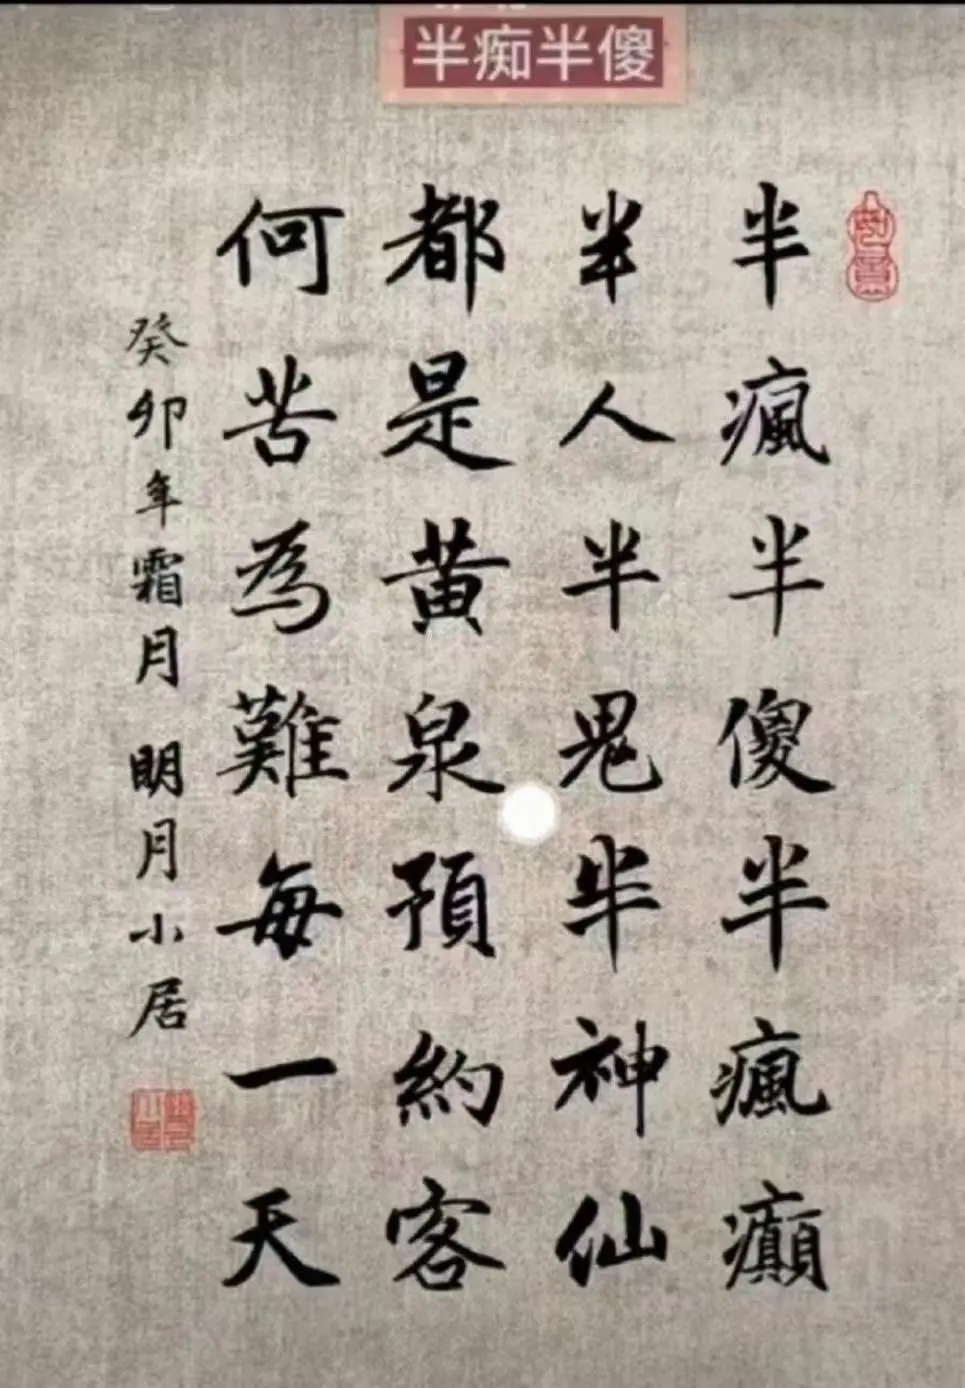 半痴半傻
半瘋半傻半瘋癲
半人半鬼半神仙
都是黄泉預約客
何苦為難每一天
癸卯年霜月明月小居